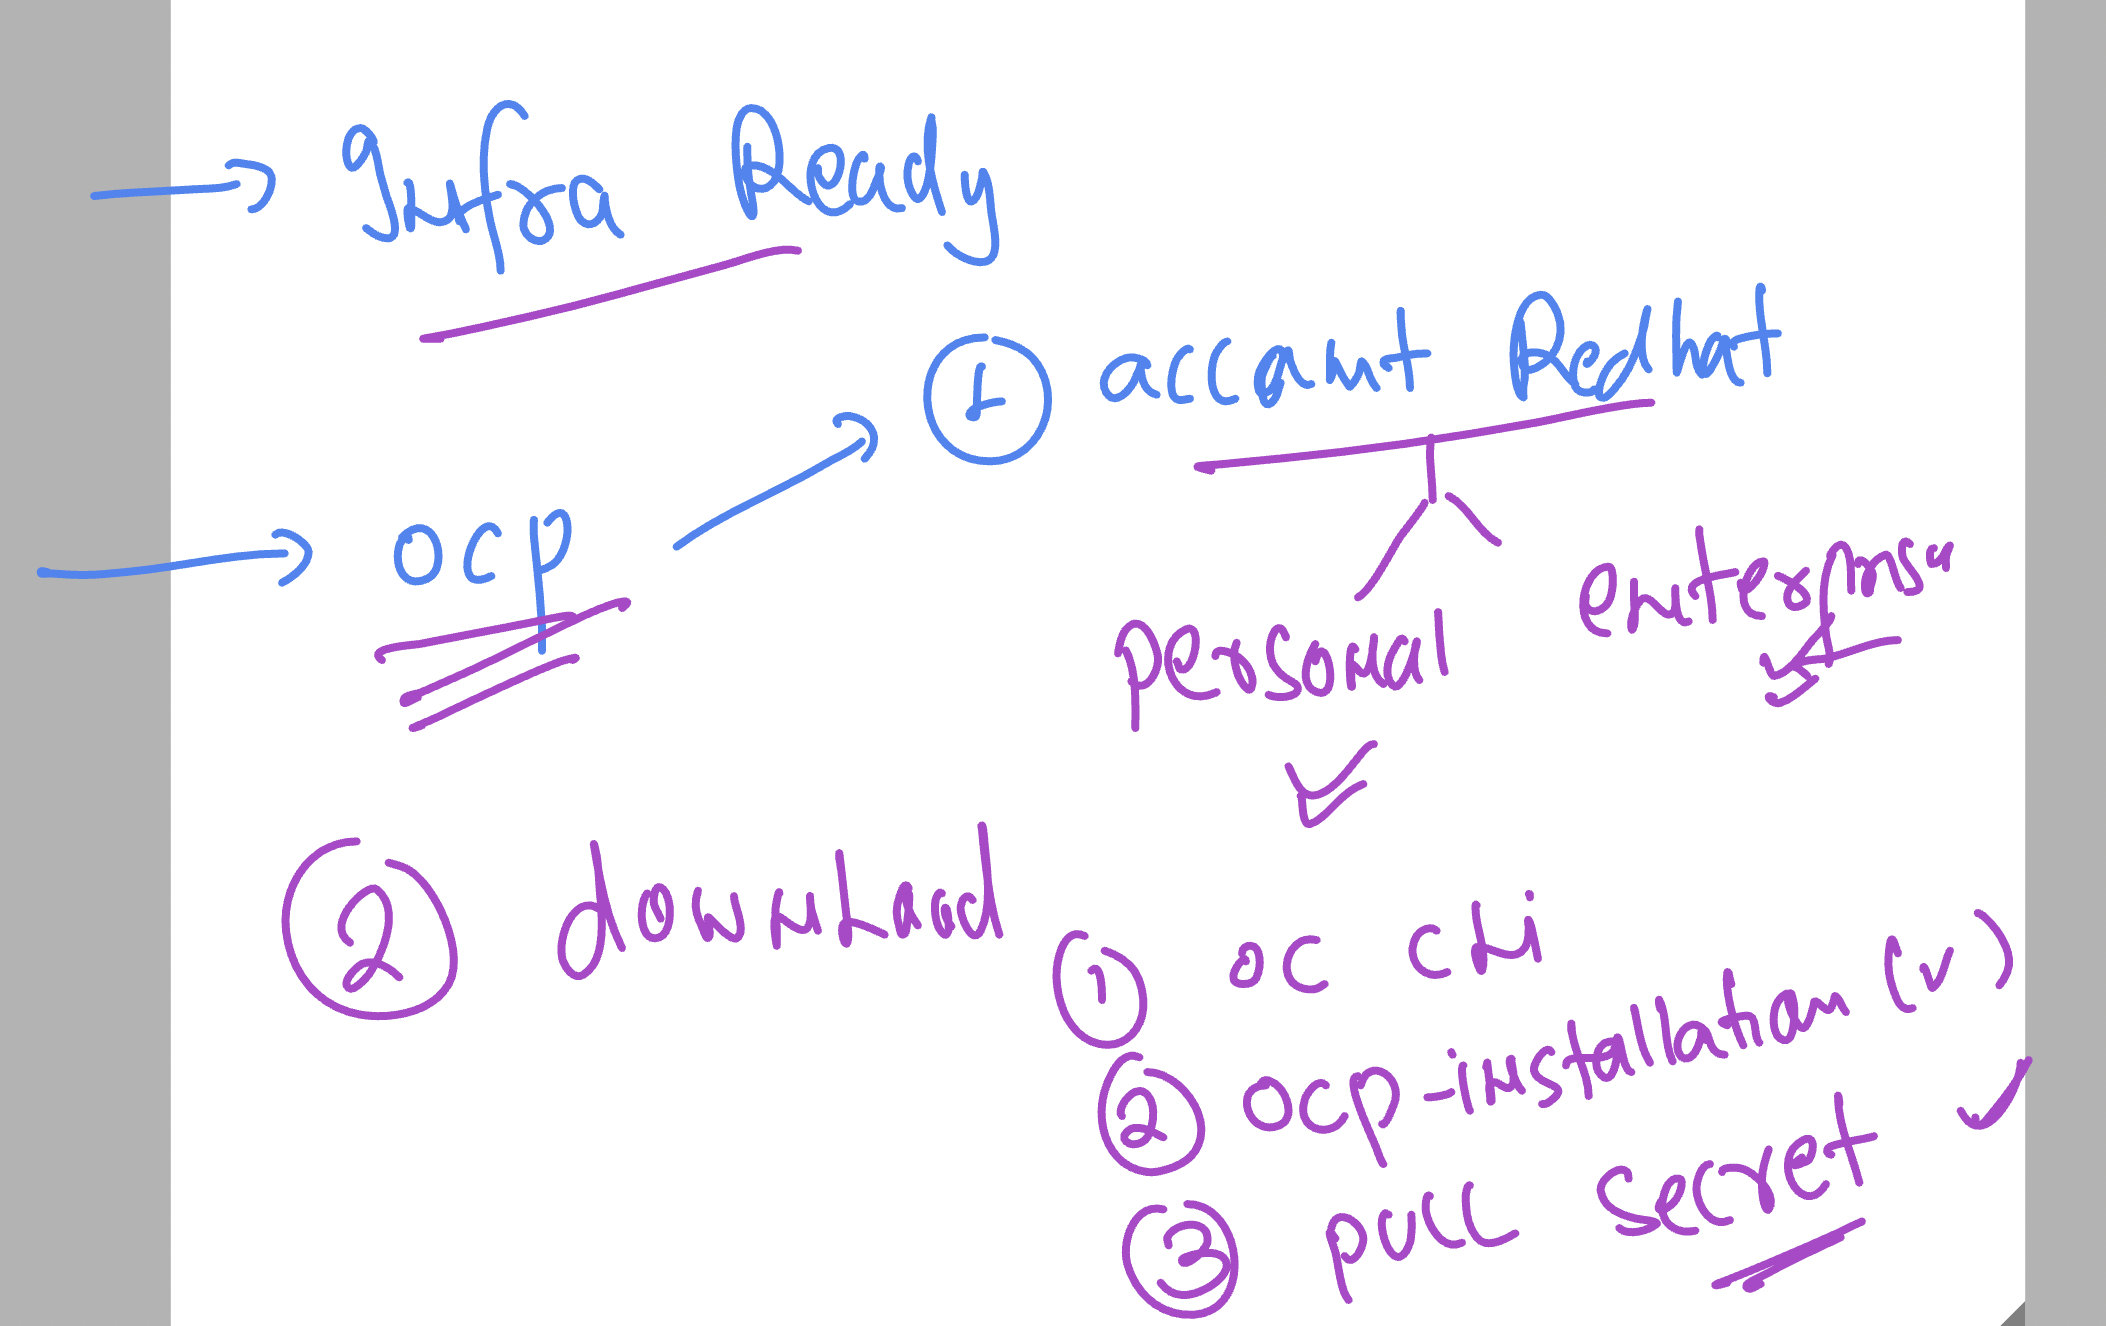 Infra Ready
1 account Redhat
ocp
personal enterprise
2 download
1 oc cli
2 ocp-installation (v)
3 pull secret